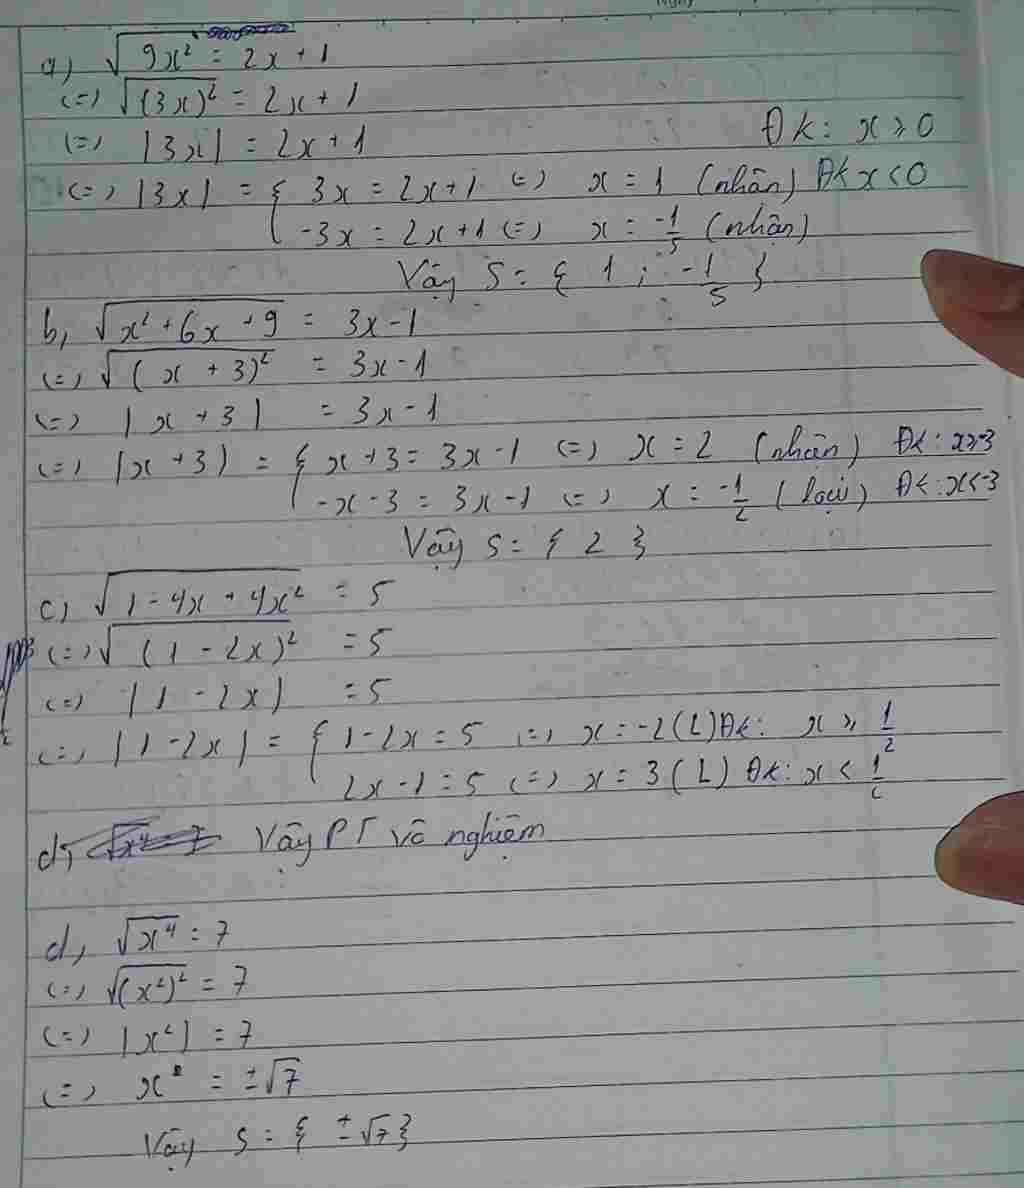 a) √9x² = 2x + 1
(=) √(3x)² = 2x + 1
(=) |3x| = 2x + 1 Đk: x ≥ 0
(=) |3x| = { 3x = 2x + 1 (=) x = 1 (nhận) Đk x < 0
-3x = 2x + 1 (=) x = -1/5 (nhận)
Vậy S = { 1 ; -1/5 }
b, √x² + 6x + 9 = 3x - 1
(=) √(x + 3)² = 3x - 1
(=) |x + 3| = 3x - 1
(=) |x + 3| = { x + 3 = 3x - 1 (=) x = 2 (nhận) Đk: x ≥ -3
-x - 3 = 3x - 1 (=) x = -1/2 (loại) Đk: x < -3
Vậy S = { 2 }
c, √1 - 4x + 4x² = 5
(=) √(1 - 2x)² = 5
(=) |1 - 2x| = 5
(=) |1 - 2x| = { 1 - 2x = 5 (=) x = -2 (L) Đk: x ≥ 1/2
2x - 1 = 5 (=) x = 3 (L) Đk: x < 1/2
d, Vậy PT vô nghiệm
d, √x⁴ = 7
(=) √(x²)² = 7
(=) |x²| = 7
(=) x = ±√7
Vậy S = { ±√7 }